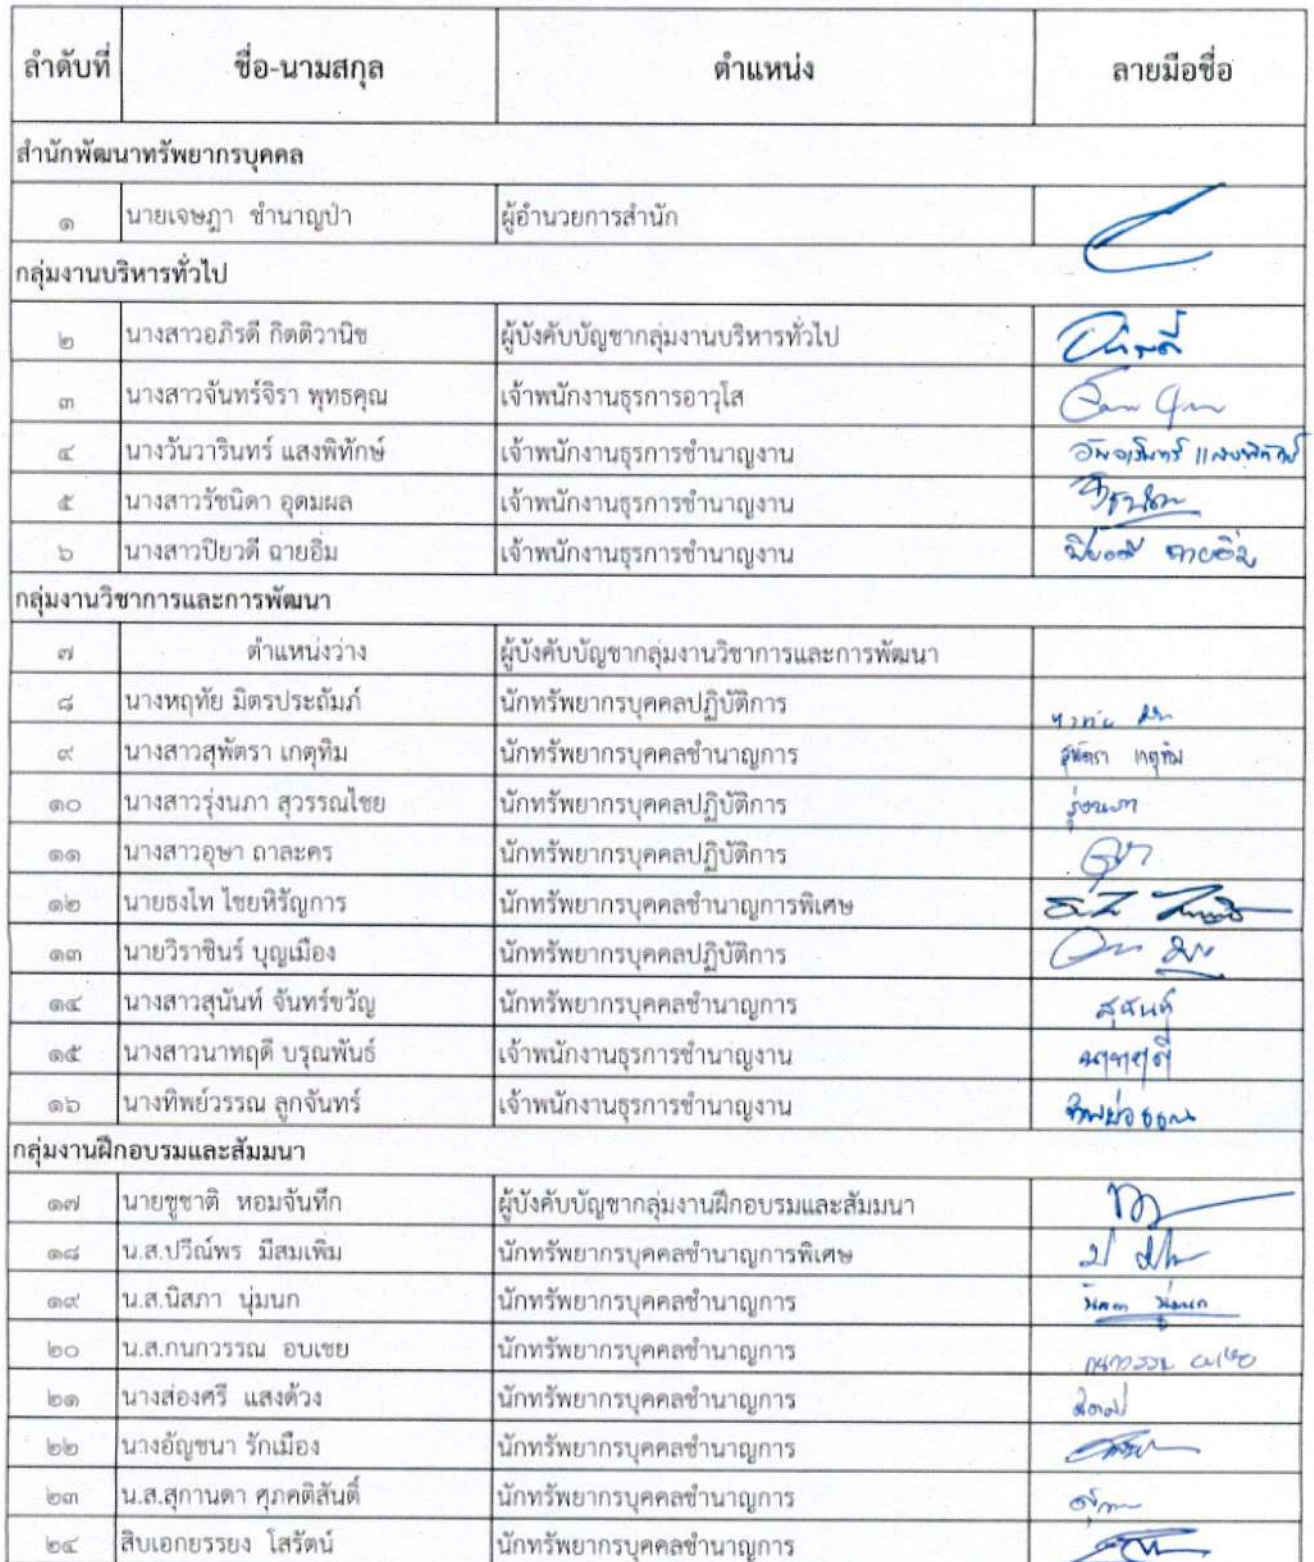 ลำดับที่ ชื่อ-นามสกุล ตำแหน่ง ลายมือชื่อ
สำนักพัฒนาทรัพยากรบุคคล
๑ นายเจษฎา ชำนาญป่า ผู้อำนวยการสำนัก
กลุ่มงานบริหารทั่วไป
๒ นางสาวอภิรดี กิตติวานิช ผู้บังคับบัญชากลุ่มงานบริหารทั่วไป
๓ นางสาวจันทร์จิรา พุทธคุณ เจ้าพนักงานธุรการอาวุโส
๔ นางวันวารินทร์ แสงพิทักษ์ เจ้าพนักงานธุรการชำนาญงาน
๕ นางสาวรัชนิดา อุดมผล เจ้าพนักงานธุรการชำนาญงาน
๖ นางสาวปิยวดี ฉายอิ่ม เจ้าพนักงานธุรการชำนาญงาน ปิยวดี ฉายอิ่ม
กลุ่มงานวิชาการและการพัฒนา
๗ ตำแหน่งว่าง ผู้บังคับบัญชากลุ่มงานวิชาการและการพัฒนา
๘ นางหฤทัย มิตรประถัมภ์ นักทรัพยากรบุคคลปฏิบัติการ
๙ นางสาวสุพัตรา เกตุทิม นักทรัพยากรบุคคลชำนาญการ สุพัตรา เกตุทิม
๑๐ นางสาวรุ่งนภา สุวรรณไชย นักทรัพยากรบุคคลปฏิบัติการ รุ่งนภา
๑๑ นางสาวอุษา ถาละคร นักทรัพยากรบุคคลปฏิบัติการ
๑๒ นายธงไท ไชยหิรัญการ นักทรัพยากรบุคคลชำนาญการพิเศษ
๑๓ นายวิราชินร์ บุญเมือง นักทรัพยากรบุคคลปฏิบัติการ
๑๔ นางสาวสุนันท์ จันทร์ขวัญ นักทรัพยากรบุคคลชำนาญการ สุนันท์
๑๕ นางสาวนาทฤดี บรุณพันธ์ เจ้าพนักงานธุรการชำนาญงาน นาทฤดี
๑๖ นางทิพย์วรรณ ลูกจันทร์ เจ้าพนักงานธุรการชำนาญงาน ทิพย์วรรณ
กลุ่มงานฝึกอบรมและสัมมนา
๑๗ นายชูชาติ หอมจันทึก ผู้บังคับบัญชากลุ่มงานฝึกอบรมและสัมมนา
๑๘ น.ส.ปวีณ์พร มีสมเพิ่ม นักทรัพยากรบุคคลชำนาญการพิเศษ
๑๙ น.ส.นิสภา นุ่มนก นักทรัพยากรบุคคลชำนาญการ นิสภา นุ่มนก
๒๐ น.ส.กนกวรรณ อบเชย นักทรัพยากรบุคคลชำนาญการ กนกวรรณ อบเชย
๒๑ นางส่องศรี แสงด้วง นักทรัพยากรบุคคลชำนาญการ
๒๒ นางอัญชนา รักเมือง นักทรัพยากรบุคคลชำนาญการ
๒๓ น.ส.สุกานดา ศุภคติสันติ์ นักทรัพยากรบุคคลชำนาญการ
๒๔ สิบเอกยรรยง โสรัตน์ นักทรัพยากรบุคคลชำนาญการ